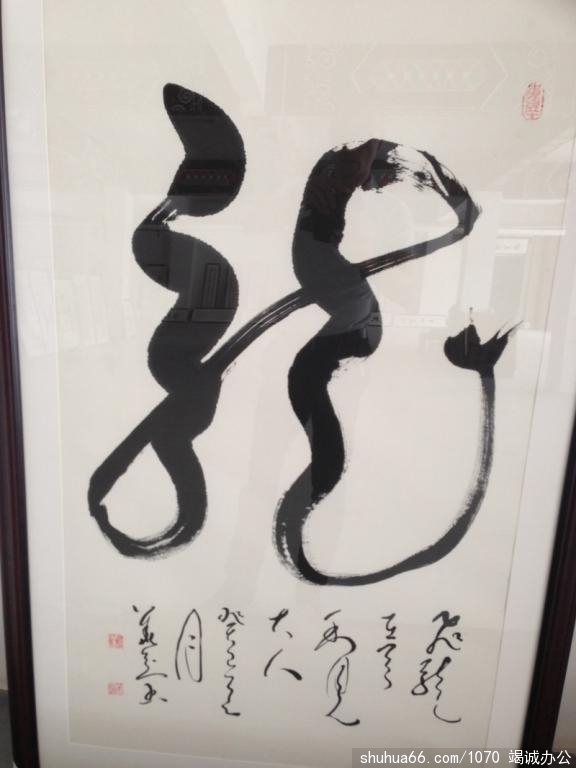 龍
飛龍
在天
利見
大人
癸巳
月
shuhua66.com/1070 竭诚办公